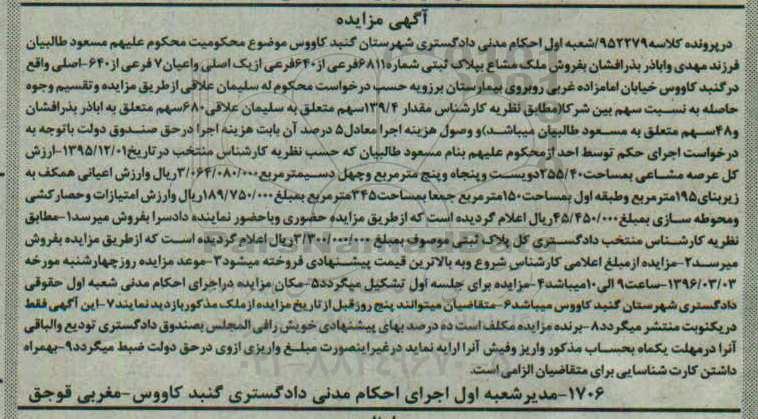 آگهی مزایده
درپرونده کلاسه۹۵۲۲۷۹/شعبه اول احکام مدنی دادگستری شهرستان گنبد کاووس موضوع محکومیت محکوم علیهم مسعود طالبیان
فرزند مهدی واباذر بذرافشان بفروش ملک مشاع بپلاک ثبتی شماره۶۸۱۱فرعی از۶۴۰فرعی ازیک اصلی واعیان۷ فرعی از۶۴۰-اصلی واقع
درگنبد کاووس خیابان امامزاده غربی روبروی بیمارستان برزویه حسب درخواست محکوم له سلیمان علاقی ازطریق مزایده وتقسیم وجوه
حاصله به نسبت سهم بین شرکا(مطابق نظریه کارشناس مقدار ۱۳۹/۴سهم متعلق به سلیمان علاقی۶۸۰سهم متعلق به اباذر بذرافشان
و۴۸سهم متعلق به مسعود طالبیان میباشد)و وصول هزینه اجرا معادل۵ درصد آن بابت هزینه اجرا درحق صندوق دولت باتوجه به
درخواست اجرای حکم توسط احد ازمحکوم علیهم بنام مسعود طالبیان که حسب نظریه کارشناس منتخب درتاریخ۱۳۹۵/۱۲/۰۱-ارزش
کل عرصه مشاعی بمساحت۲۵۵/۴۰دویست وپنجاه وپنج مترمربع وچهل دسیمترمربع۳/۰۶۴/۰۸۰/۰۰۰ریال وارزش اعیانی همکف به
زیربنای۱۹۵مترمربع وطبقه اول بمساحت۱۵۰مترمربع جمعا بمساحت۳۴۵مترمربع بمبلغ۱۸۹/۷۵۰/۰۰۰ریال وارزش امتیازات وحصارکشی
ومحوطه سازی بمبلغ۴۵/۴۵۰/۰۰۰ریال اعلام گردیده است که ازطریق مزایده حضوری وباحضور نماینده دادسرا بفروش میرسد۱-مطابق
نظریه کارشناس منتخب دادگستری کل پلاک ثبتی موصوف بمبلغ ۳/۳۰۰/۰۰۰/۰۰۰ریال اعلام گردیده است که ازطریق مزایده بفروش
میرسد۲-مزایده ازمبلغ اعلامی کارشناس شروع وبه بالاترین قیمت پیشنهادی فروخته میشود۳-موعد مزایده روزچهارشنبه مورخه
۱۳۹۶/۰۳/۰۳-ساعت۹ الی۱۰میباشد۴-مزایده برای جلسه اول تشکیل میگردد۵-مکان مزایده دراجرای احکام مدنی شعبه اول حقوقی
دادگستری شهرستان گنبد کاووس میباشد۶-متقاضیان میتوانند پنج روزقبل ازتاریخ مزایده ازملک مذکوربازدیدنمایند۷-این آگهی فقط
دریکنوبت منتشر میگردد۸-برنده مزایده مکلف است ده درصد بهای پیشنهادی خویش رافی المجلس بصندوق دادگستری تودیع والباقی
آنرا درمهلت یکماه بحساب مذکور واریز وفیش آنرا ارایه نماید درغیراینصورت مبلغ واریزی ازوی درحق دولت ضبط میگردد۹-بهمراه
داشتن کارت شناسایی برای متقاضیان الزامی است.
۱۷۰۶-مدیرشعبه اول اجرای احکام مدنی دادگستری گنبد کاووس-مغربی قوجق